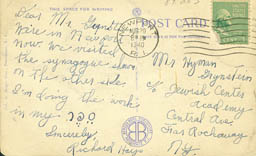 THIS SPACE FOR WRITING
POST CARD
Dear Mr.
We're in New
Now. We visited
the synagogue shown
on the other side.
I'm doing the work
in my
Sincerely,
Richard
NEW
1940
Mr. Hyman
Grynstein
c/o Jewish Center
Academy
Central Ave.
Far Rockaway
N.Y.